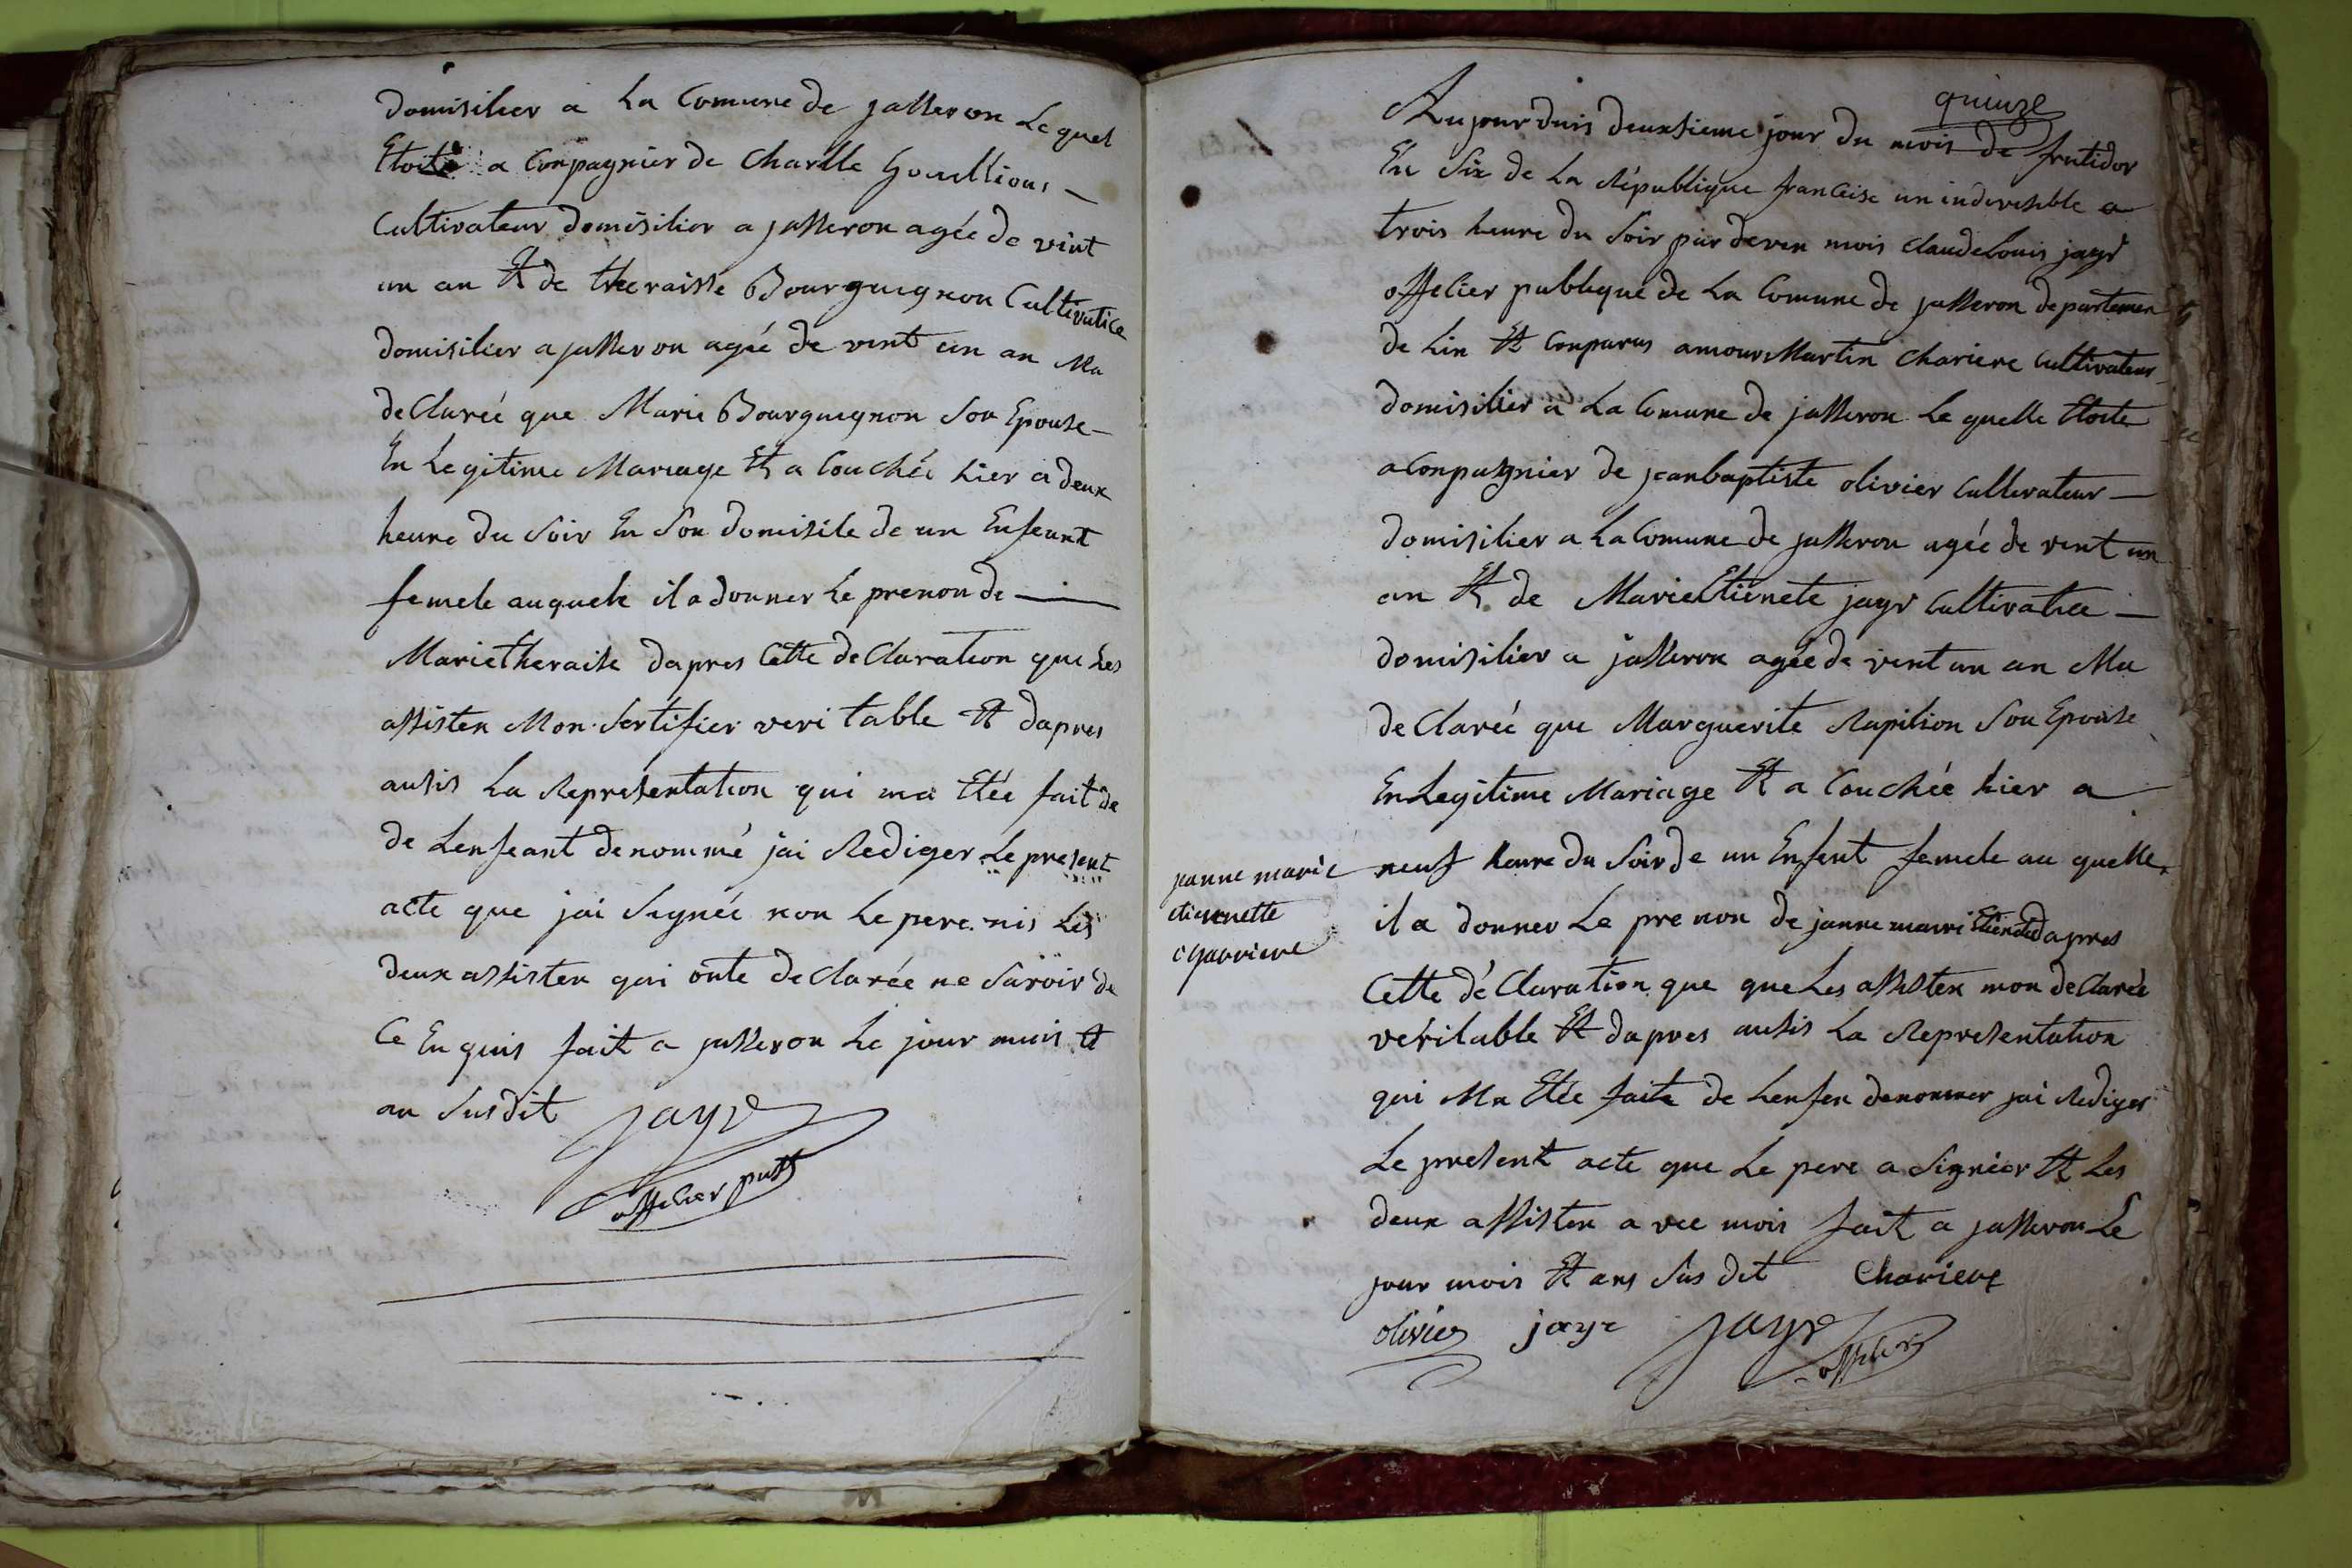 domisilier a La Comune de jasseron Le quel
Etoite a Conpagnier de Charlle Gouillious
Cultivateur domisilier a jasseron agée de vint
un an Et de theraisse Bourguignon Cultivatice
domisilier a jasseron ageé de vint un an Ma
deClareé que Marie Bourguignon Son Epouse
En Legitime Mariage Et a Couchée hier a deux
heure du Soir En Son domisile de un Enfeant
femele auquele il a donner Le prenon de
Marietheraise dapres Cette deClaration que Les
assisten Mon Sertifier veritable Et dapres
ausis La Representation qui ma Etée fait de
de Lenfeant denommé jai Rediger Le present
acte que jai Signée non Le pere nis Les
deux assisten qui onte deClarée ne Savoir de
Ce En quis fait a jasseron Le jour mois Et
an Susdit jayr
offecier
quinze
Aujourduis deuxsieme jour du mois de frutidor
En Six de La République francaise un indivesible a
trois heure du Soir par deven mois Claude Louis jayr
offecier publique de La Comune de jasseron departemen
de Lin Et Conparus amour Martin Chariere Cultivateur
domisilier a La Comune de jasseron Le quelle Etoite
a Conpagnier de jeanbaptiste olivier Cultivateur
domisilier a La Comune de jasseron agée de vent un
an Et de Marie Etienete jayr Cultivatrice
domisilier a jasseron agée de vent un an Ma
deClareé que Marguerite Rapilion Son Epouse
En Legitime Mariage Et a Couchée hier a
neuf heure du Soir de un Enfent femele au quelle
il a donner Le pre non de janne marri Etienete dapres
Cette déClaration que que Les assisten mon deClarée
veritable Et dapres ausis La Representation
qui Ma Etée faite de Lenfen denommer jai Rediger
Le present acte que Le pere a Signier Et Les
deux assisten a vec mois fait a jasseron Le
jour mois Et ans Sus dit Chariere
olivier jayr jayr
offecier
janne marie
etiennette
charriere